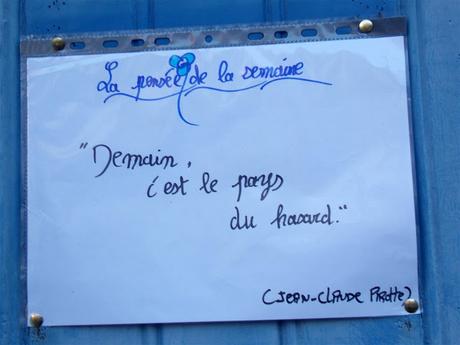 La pensée de la semaine
"Demain,
c'est le pays
du hasard."
(JEAN-CLAUDE PIROTTE)